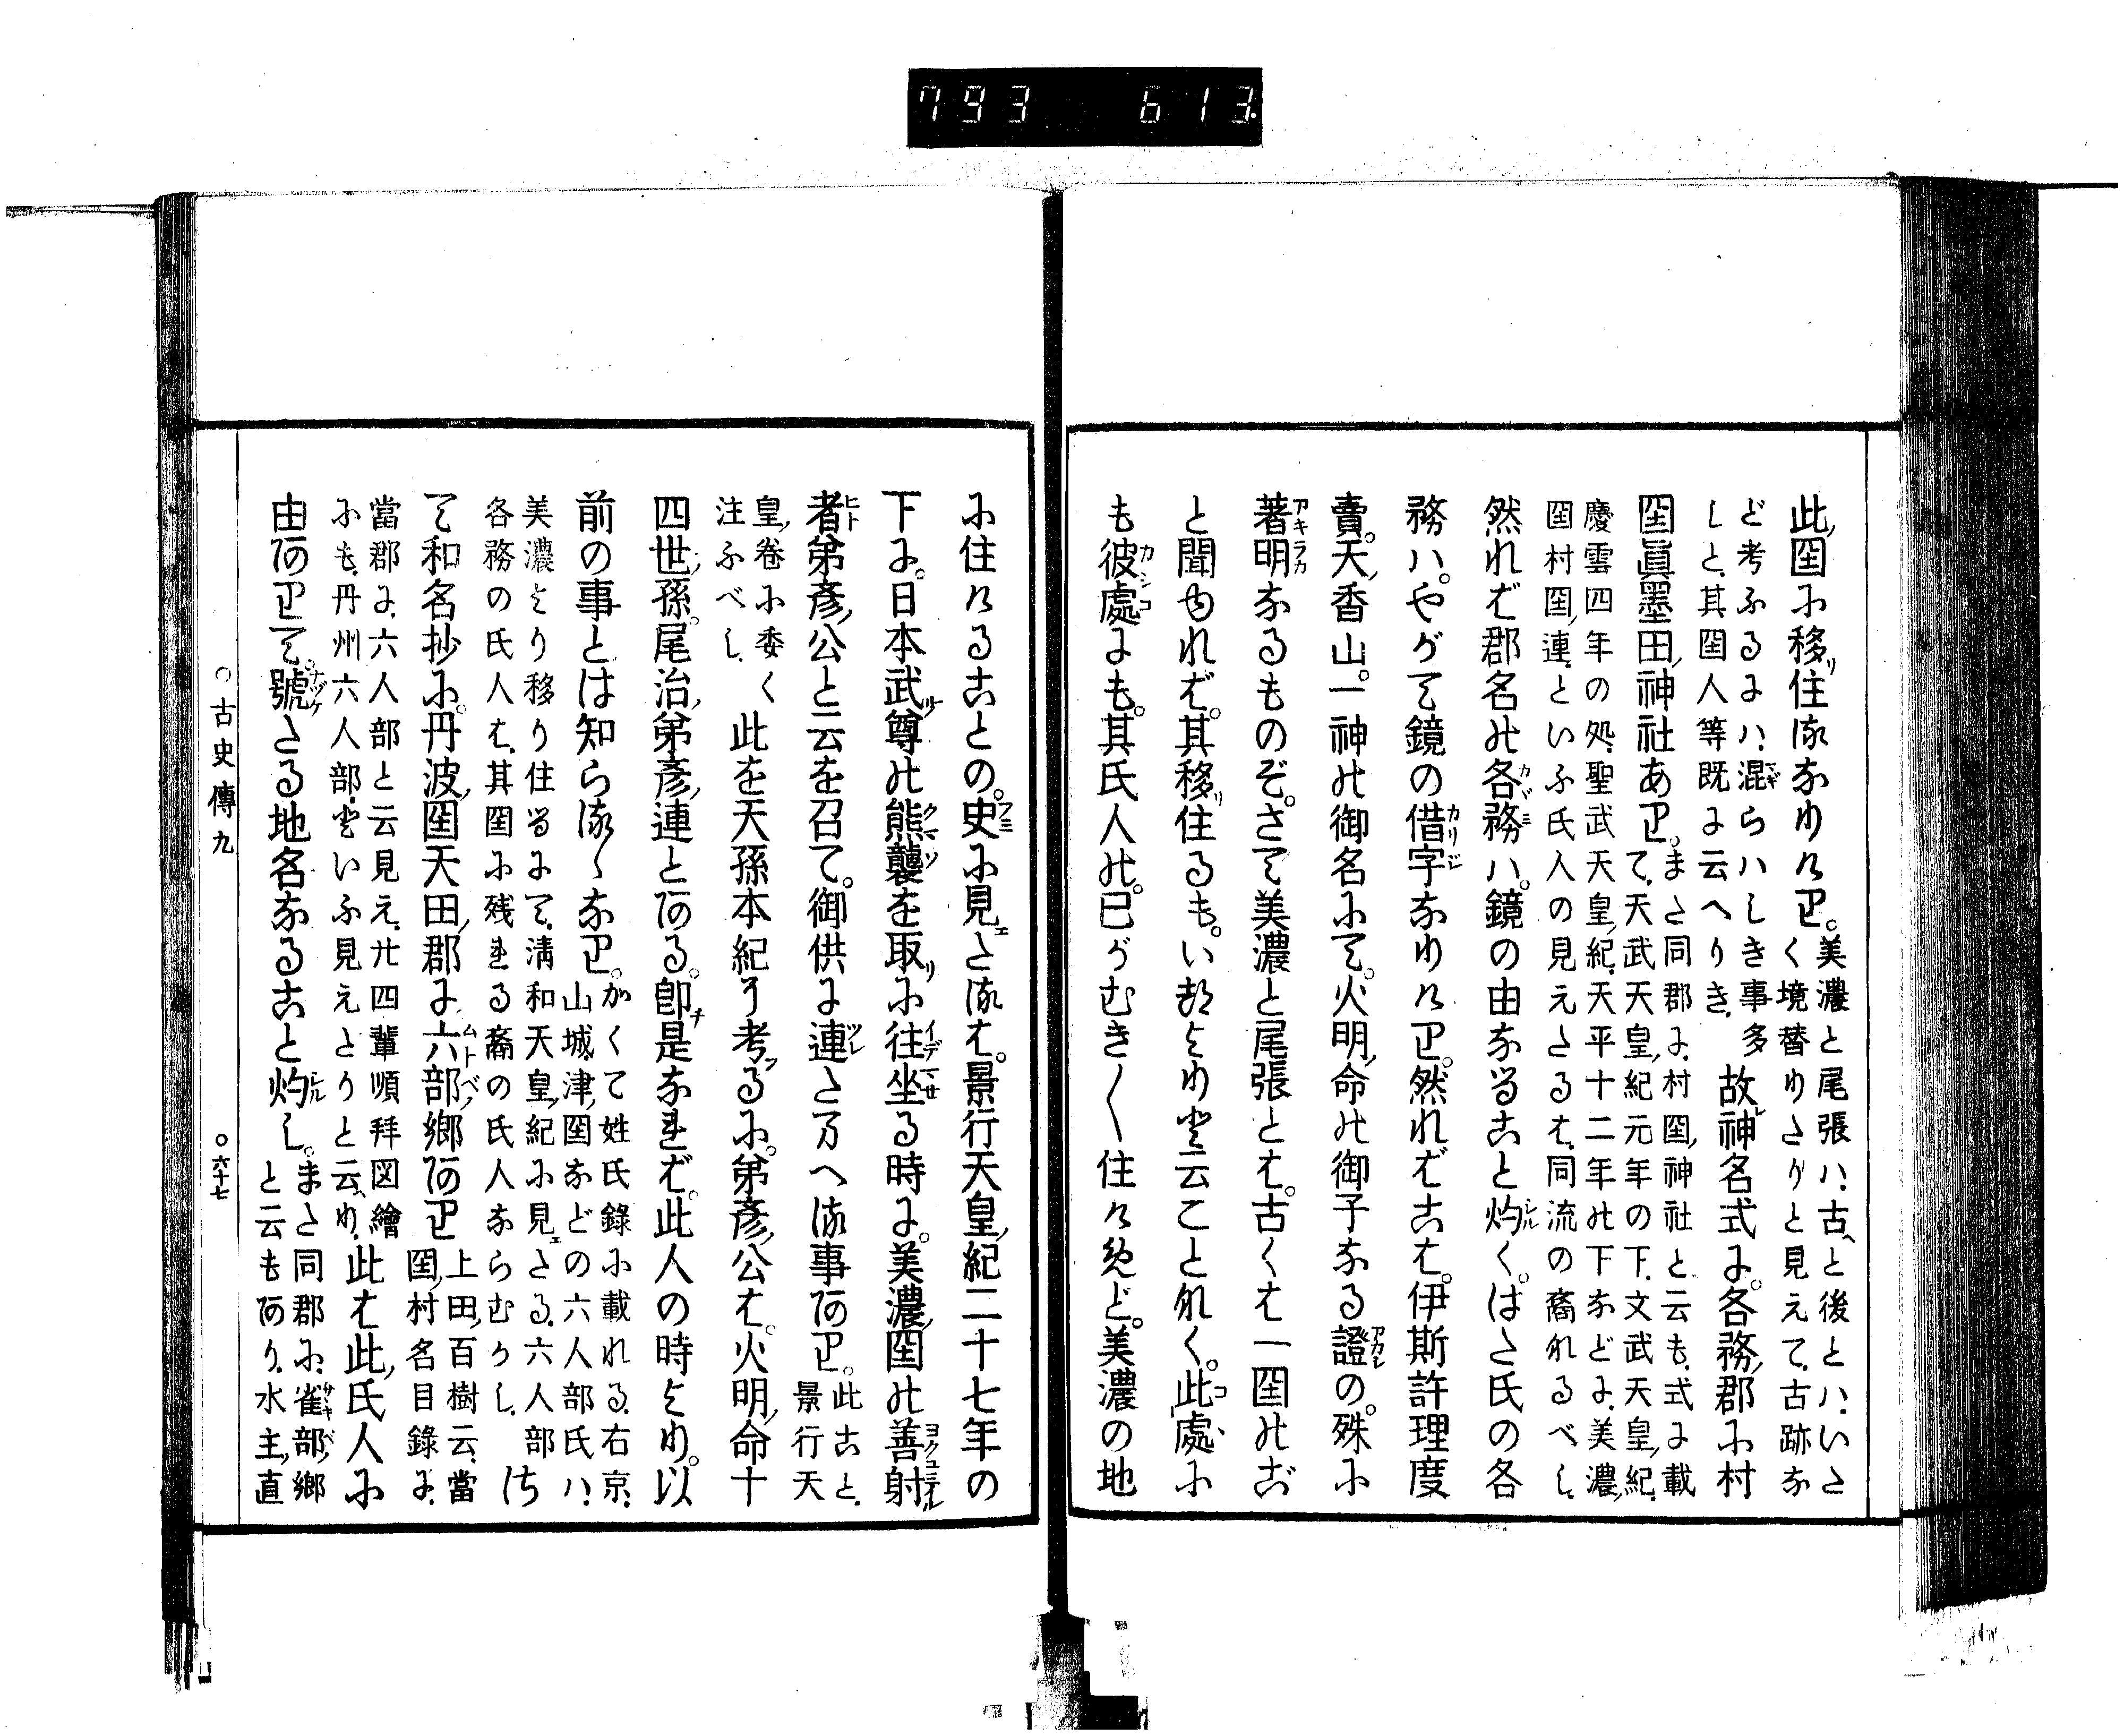 793 613
此國に移リ住るなりけり。美濃と尾張ハ、古ヘと後とハ、いたく境替りたりと見えて、古跡な
ど考ふるにハ、混らハしき事多し と、其國人等既に云へりき、故神名式に。各務郡に村
國眞墨田神社あり。また同郡に、村國神社と云も、式に載て、天武天皇紀元年の下、文武天皇紀、
慶雲四年の処、聖武天皇紀、天平十二年の下などに、美濃國村國連、といふ氏人の見えたるは、同流の裔なるべし、
然れば郡名の各務ハ。鏡の由なること灼く。はた氏の各
務ハ。やがて鏡の借字なりけり。然れば古は。伊斯許理度
賣。天香山。一神の御名にて。火明命の御子なる證の。殊に
著明なるものぞ。さて美濃と尾張とは。古くは一國のごと
と聞ゆれば。其移リ住るも。いとはやくより云ことなく。此處に
も彼處にも。其氏人の。己がむき〳〵住けめど。美濃の地
に住けることの。史に見えたるは。景行天皇紀二十七年の
下に。日本武尊の熊襲を取リに往坐る時に。美濃國の善射
者弟彦公と云を召て。御供に連たまへる事あり。此こと、景行天
皇卷に委く注ふべし、此を天孫本紀に考るに。弟彦公は。火明命十
四世孫。尾治弟彦連とある。卽チ是なれば。此人の時より。以
前の事とは知らるゝなり。かくて姓氏錄に載れる、右京、山城、津國などの六人部氏ハ、
美濃より移り住るにて、淸和天皇紀に見えたる、六人部各務の氏人は、其國に殘れる裔の氏人ならむかし、さ
て和名抄に。丹波國天田郡に六部鄕あり 上田百樹云、當國村名目錄に、
當郡に、六人部と云見え、廿四輩順拜図繪にも、丹州六人部、といふ見えたりと云へり、此は此氏人に
由ありて。號たる地名なること灼し。また同郡に、雀部鄕と云もあり、水主直
○古史傳九 ○六十七